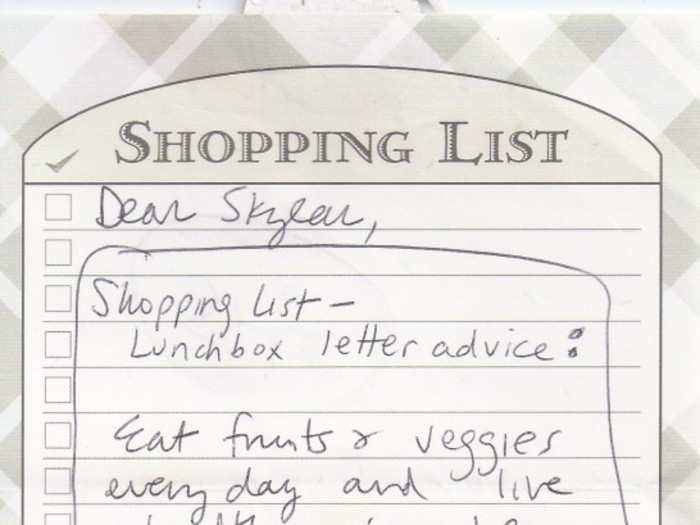 SHOPPING LIST
Dear Skylar,
Shopping list -
Lunchbox letter advice:
Eat fruits & veggies
every day and live